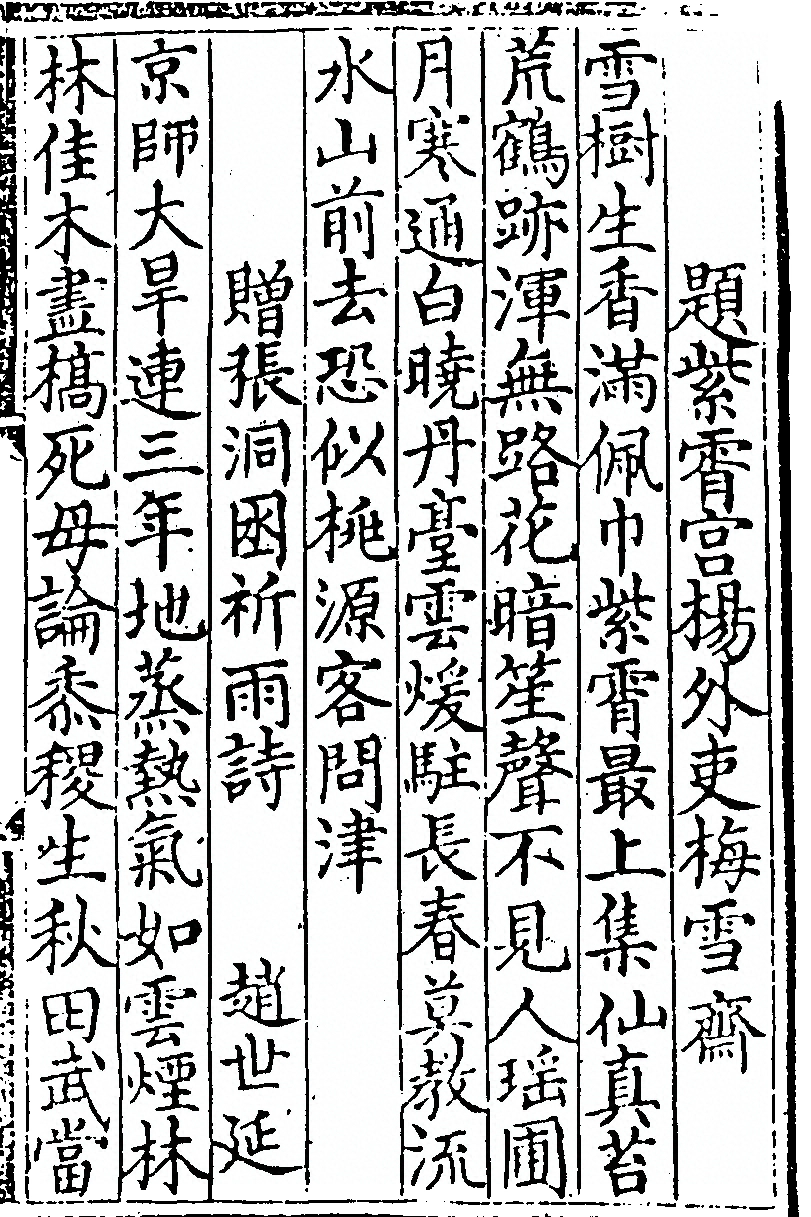 題紫霄宮楊外吏梅雪齋
雪樹生香滿佩巾紫霄最上集仙真苔
荒鶴跡渾無路花暗笙聲不見人瑶圃
月寒通白曉丹臺雲煖駐長春莫教流
水山前去恐似桃源客問津
贈張洞囦祈雨詩　趙世延
京師大旱連三年地蒸熱氣如雲煙林
林佳木盡槁死毋論黍稷生秋田武當